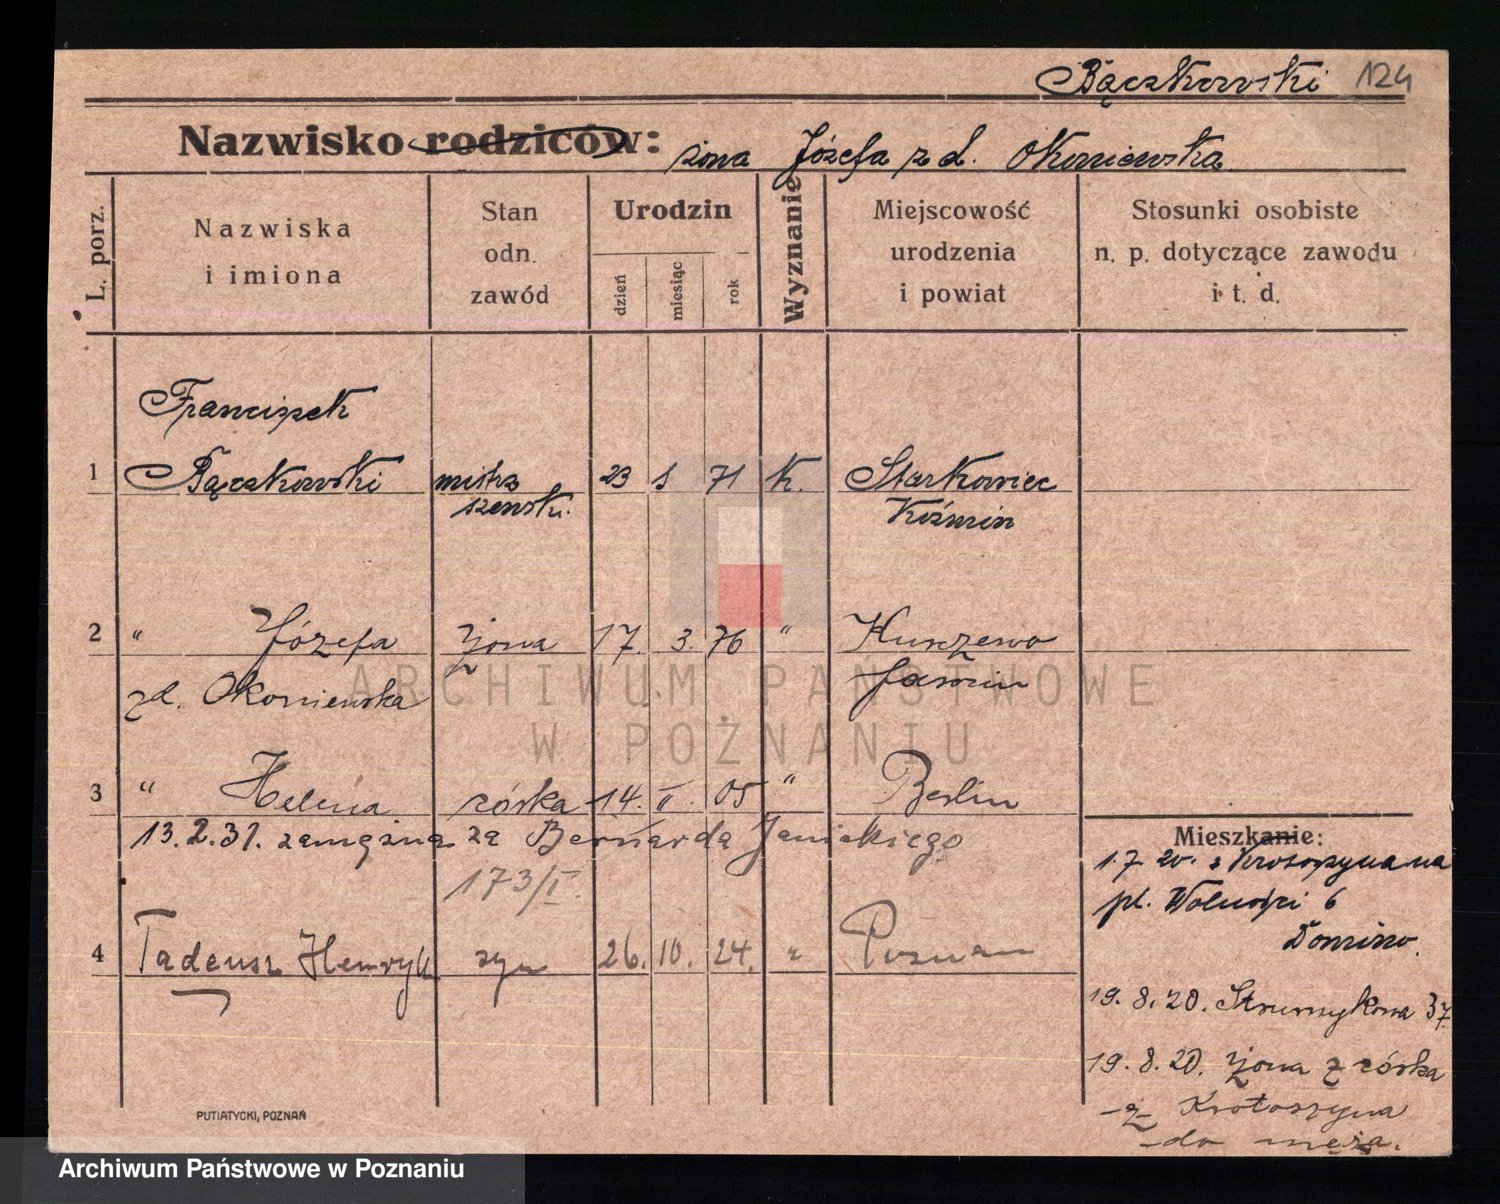 Bączkowski 124
Nazwisko rodziców: żona Józefa z d. Okoniewska
L. porz.
Nazwiska
i imiona
Stan
odn.
zawód
Urodzin
dzień
miesiąc
rok
Wyznanie
Miejscowość
urodzenia
i powiat
Stosunki osobiste
n. p. dotyczące zawodu
i t. d.
Franciszek
1 Bączkowski mistrz 23 1 71 k. Starkowiec
szewski. Koźmin
2 " Józefa żona 17. 3. 76 " Kurczewo
zd. Okoniewska Jarocin
3 " Helena córka 14. II. 05 " Berlin
13.2.31. zamężna za Bernarda Janickiego
173/I.
Mieszkanie:
17 20. z Krotoszyna na
pl. Wolności 6
Domino.
4 Tadeusz Henryk syn 26. 10. 24. " Poznań
19. 8. 20. Strumykowa 37.
19. 8. 20. żona z córka
-z- Krotoszyna
-do męża.
PUTIATYCKI, POZNAŃ
ARCHIWUM PAŃSTWOWE
W POZNANIU
Archiwum Państwowe w Poznaniu